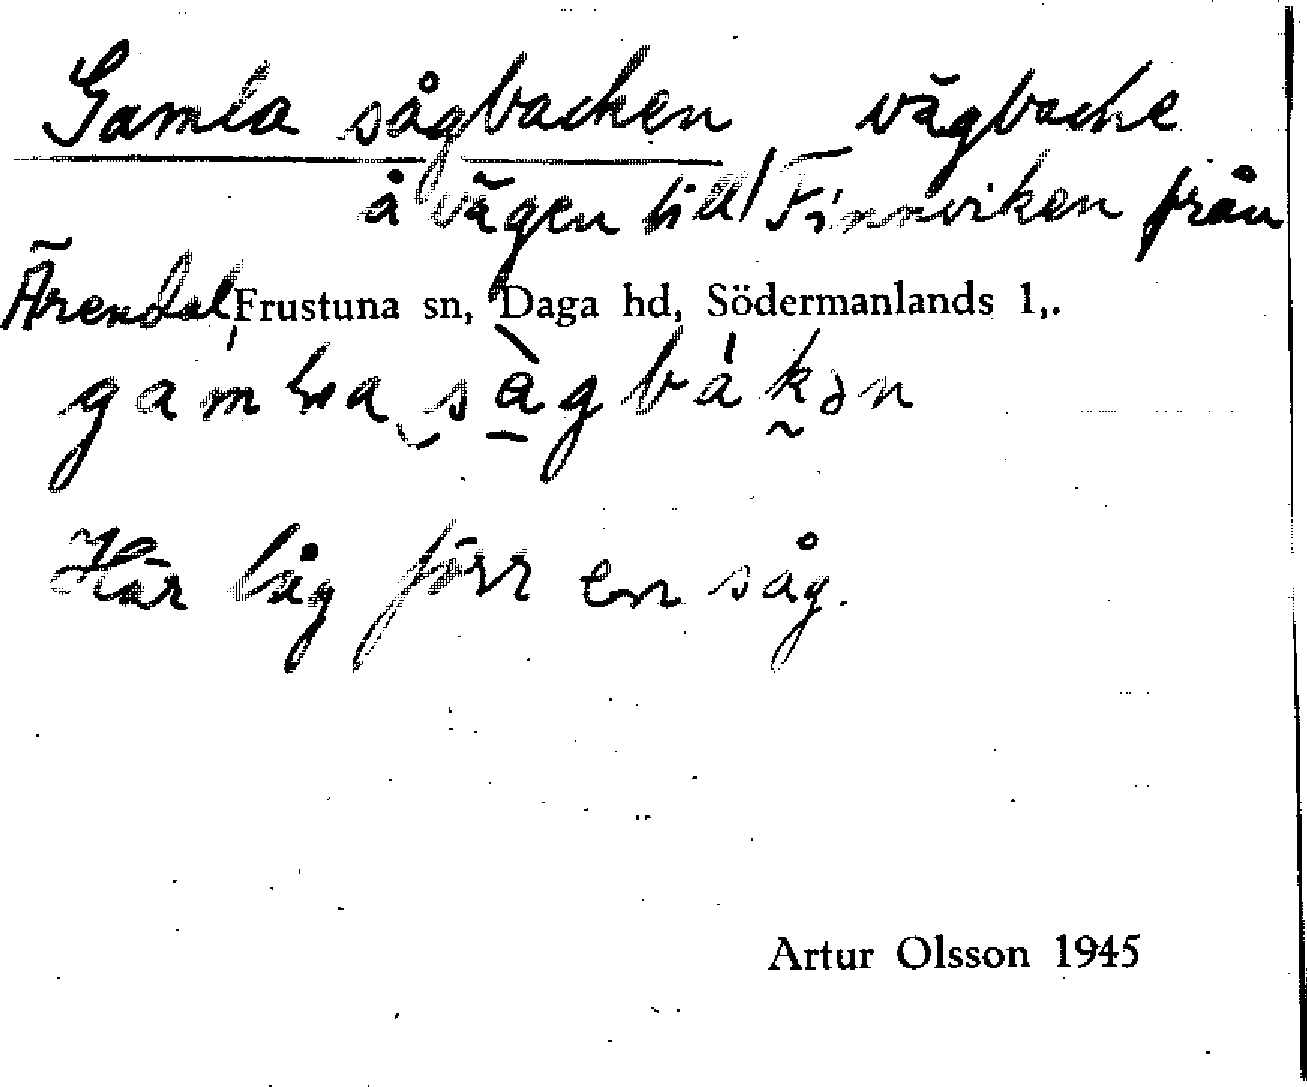 Gamla sågbacken vägbacke
å vägen till Finnviken från
Ärendal Frustuna sn, Daga hd, Södermanlands l,.
Här låg förr en såg.
Artur Olsson 1945